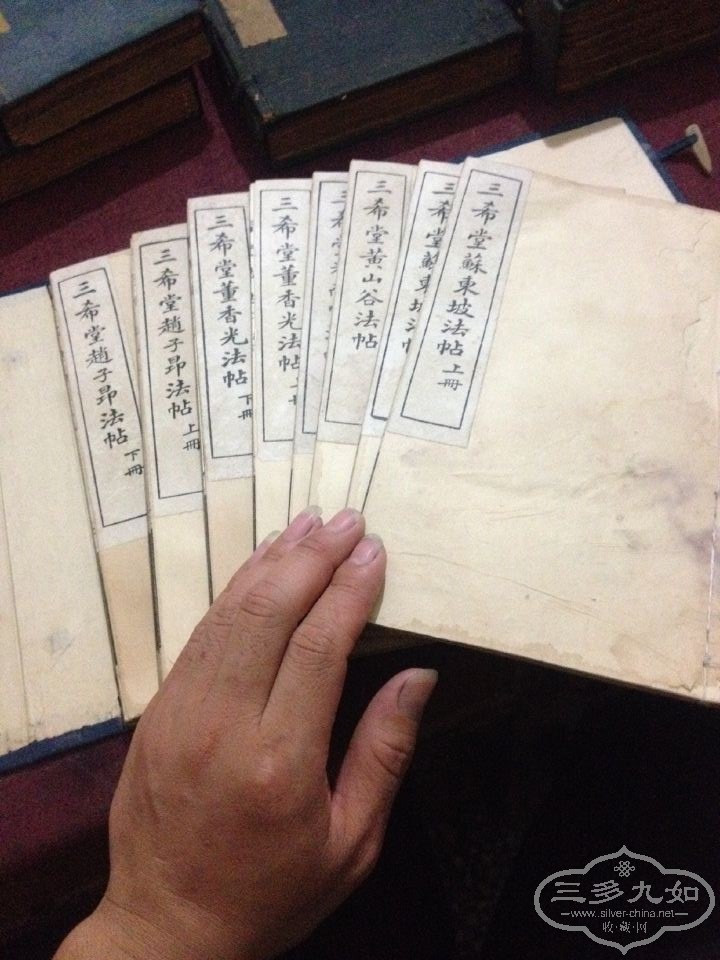 三希堂蘇東坡法帖 上冊
三希堂蘇東坡法帖
三希堂黃山谷法帖
三希堂
三希堂董香光法帖 上冊
三希堂董香光法帖 下冊
三希堂趙子昂法帖 上冊
三希堂趙子昂法帖 下冊
三多九如
www.silver-china.net
收·藏·网